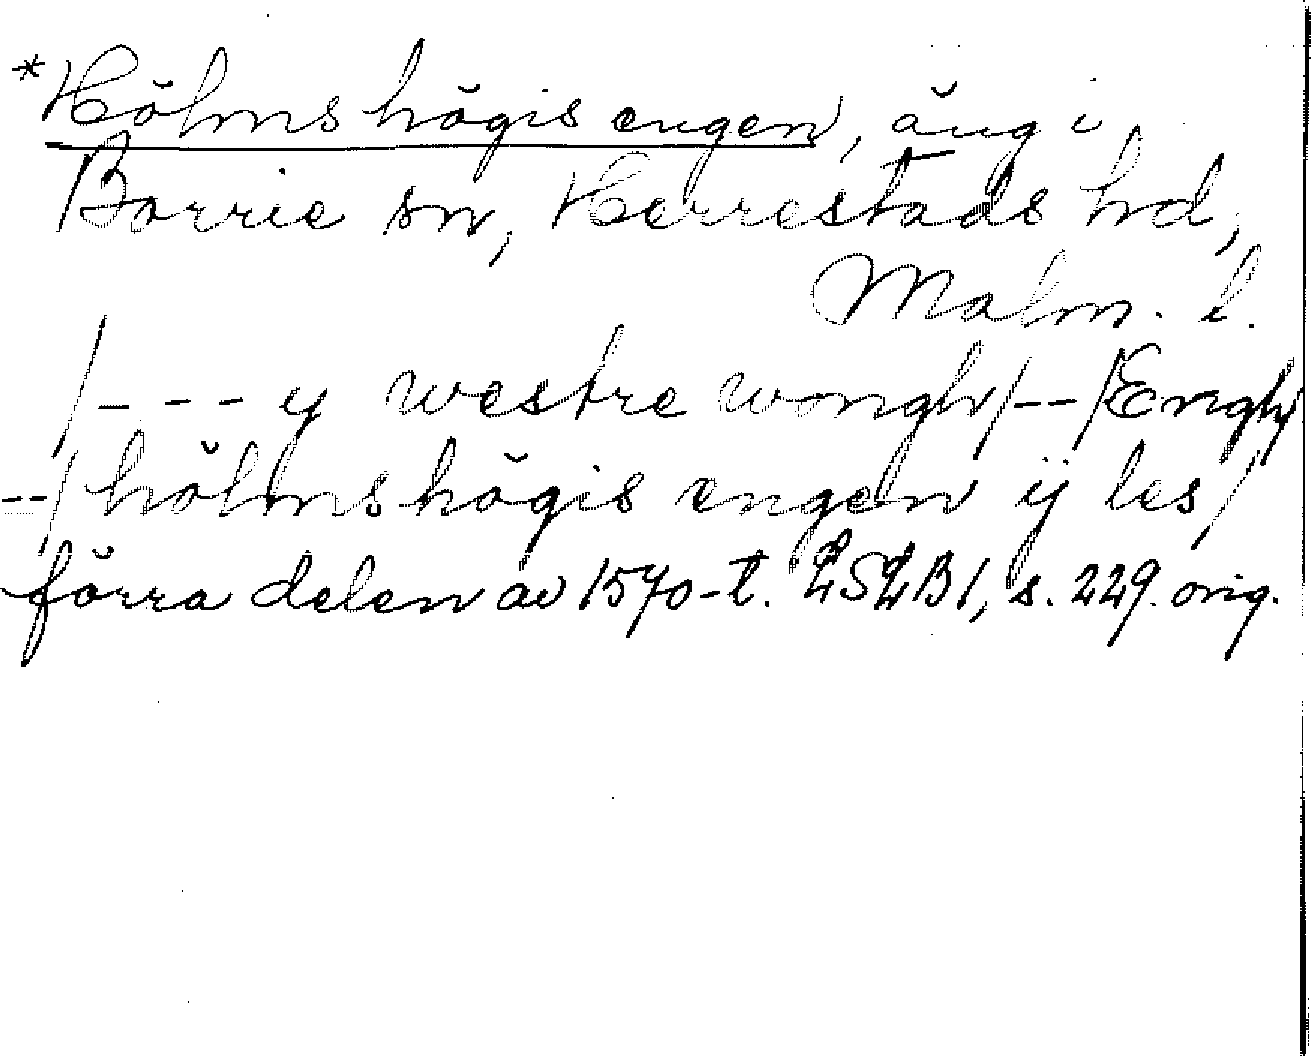 *Hölmshögis engen, äng i
Borrie sn, Herrestads hd,
Malm. l.
/--- y westre wongh/--/Engh
--/hölmshögis engen ij les/
förra delen av 1570-t. LSLB1, s. 229. orig.